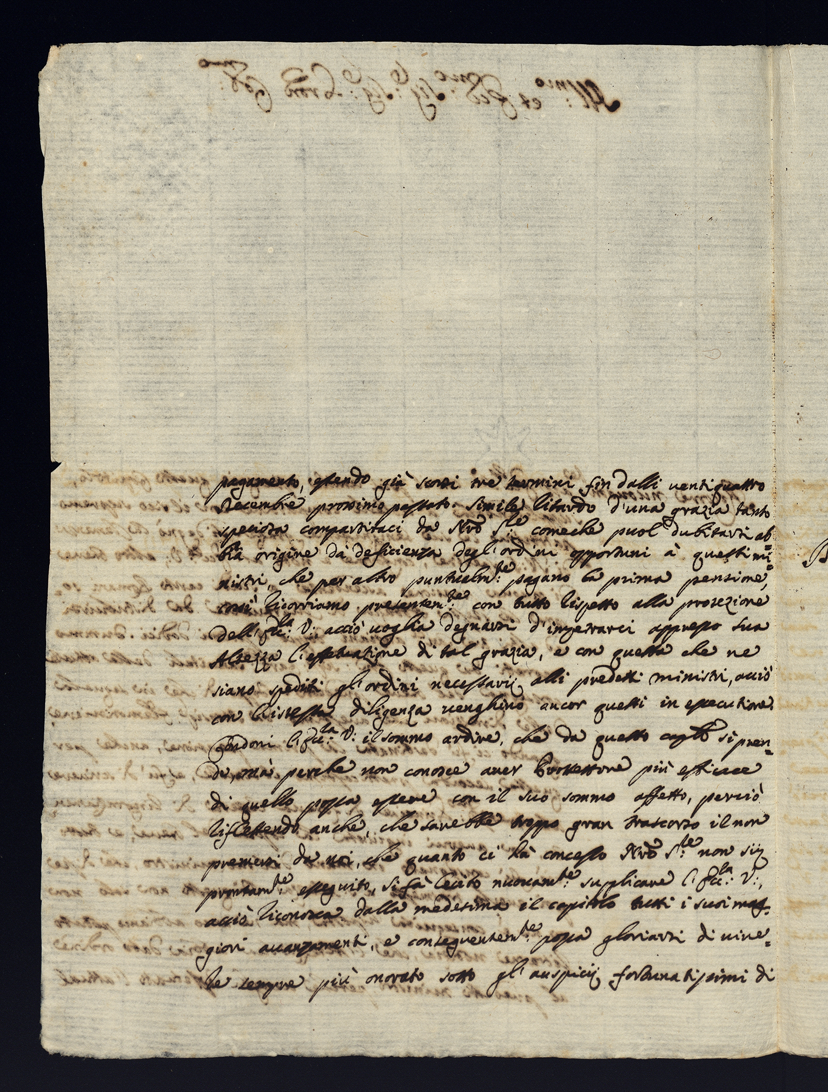 pagamento, essendo già scorsi tre termini fin dalli ventiquattro
Decembre prossimo passato. Simile ritardo d'una grazia tanto
speziosa compartitaci da Nro Sre comeche puol dubitarsi ab-
bia origine da deficienza degl'ordini opportuni à questi mi-
nistri, che per altro puntualmte pagano la prima pensione,
così ricorriamo presentemte con tutto rispetto alla protezione
dell'Ecclla V: acciò voglia degnarsi d'impetrarci appresso Sua
Altezza l'effettuazione di tal grazia, e con questa che ne
siano spediti gl'ordini necessarij alli predetti ministri, acciò
con l'istessa diligenza venghino ancor questi in esecutione
Condoni l'Ecclla V: il sommo ardire, che da questo caplo si pren-
de, mà perche non conosce aver Protettore più efficace
di quello possa essere con il suo sommo affetto, perciò
riflettendo anche, che sarebbe troppo gran trascorso il non
premersi da noi, che quanto ci hà concesso Nro Sre non sia
prontamte eseguito, si fà lecito nuovamte supplicare l'Ecclla V:,
acciò riconosca dalla medesima il capitolo tutti i suoi mag-
giori avanzamenti, e conseguentemte possa gloriarsi di vive-
re sempre più onorato sotto gl'auspicij fortunatissimi di